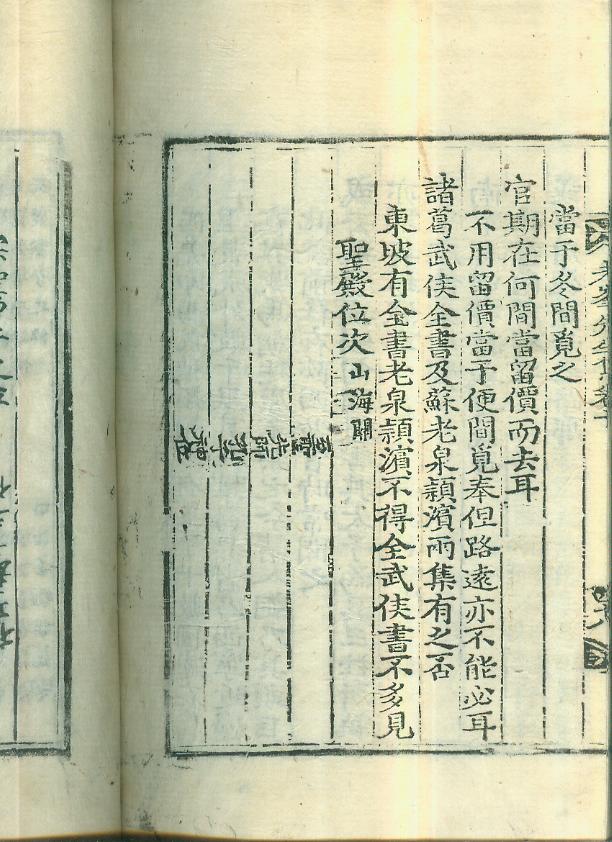 當于冬間覓之
官期在何間當留價而去耳
不用留價當于便間覓奉但路遠亦不能必耳
諸葛武侯全書及蘇老泉頴濱兩集有之否
東坡有全書老泉頴濱不得全武侯書不多見
聖殿位次山海關
至聖
先師
孔子
神位